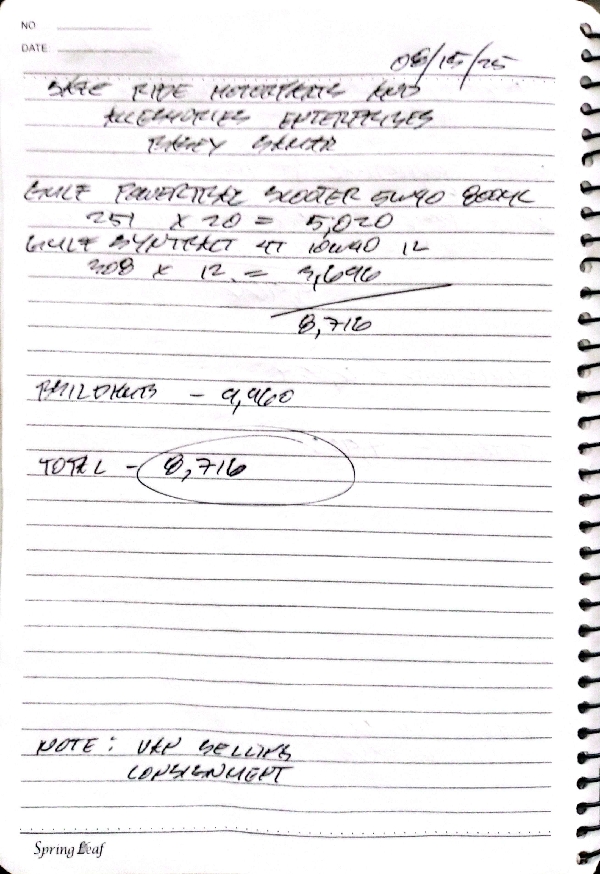 NO.
DATE:
08/15/25
SAFE RIDE MOTORPARTS AND
ACCESSORIES ENTERPRISES
BASEY SAMAR
GULF POWERTRAC SCOOTER 5W40 800ML
251 X 20 = 5,020
GULF SYNTRACT 4T 10W40 1L
308 X 12 = 3,696
8,716
- 9,960
TOTAL - 8,716
NOTE: VAN SELLING
CONSIGNMENT
Spring Leaf